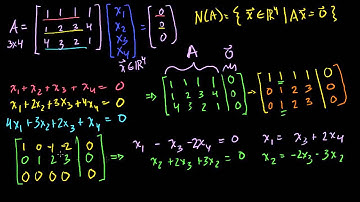 A = [1 1 1 1; 1 2 3 4; 4 3 2 1] [x₁; x₂; x₃; x₄] = [0; 0; 0]
3x4
x⃗ ∈ ℝ⁴
N(A) = { x⃗ ∈ ℝ⁴ | A x⃗ = 0⃗ }
x₁ + x₂ + x₃ + x₄ = 0
x₁ + 2x₂ + 3x₃ + 4x₄ = 0
4x₁ + 3x₂ + 2x₃ + x₄ = 0
A 0⃗
⇒ [1 1 1 1 | 0; 1 2 3 4 | 0; 4 3 2 1 | 0] →
[1 0 -1 -2 | 0; 0 1 2 3 | 0; 0 0 0 0 | 0] ⇒
x₁ - x₃ - 2x₄ = 0
x₂ + 2x₃ + 3x₂ = 0
x₁ = x₃ + 2x₄
x₂ = -2x₃ - 3x₂